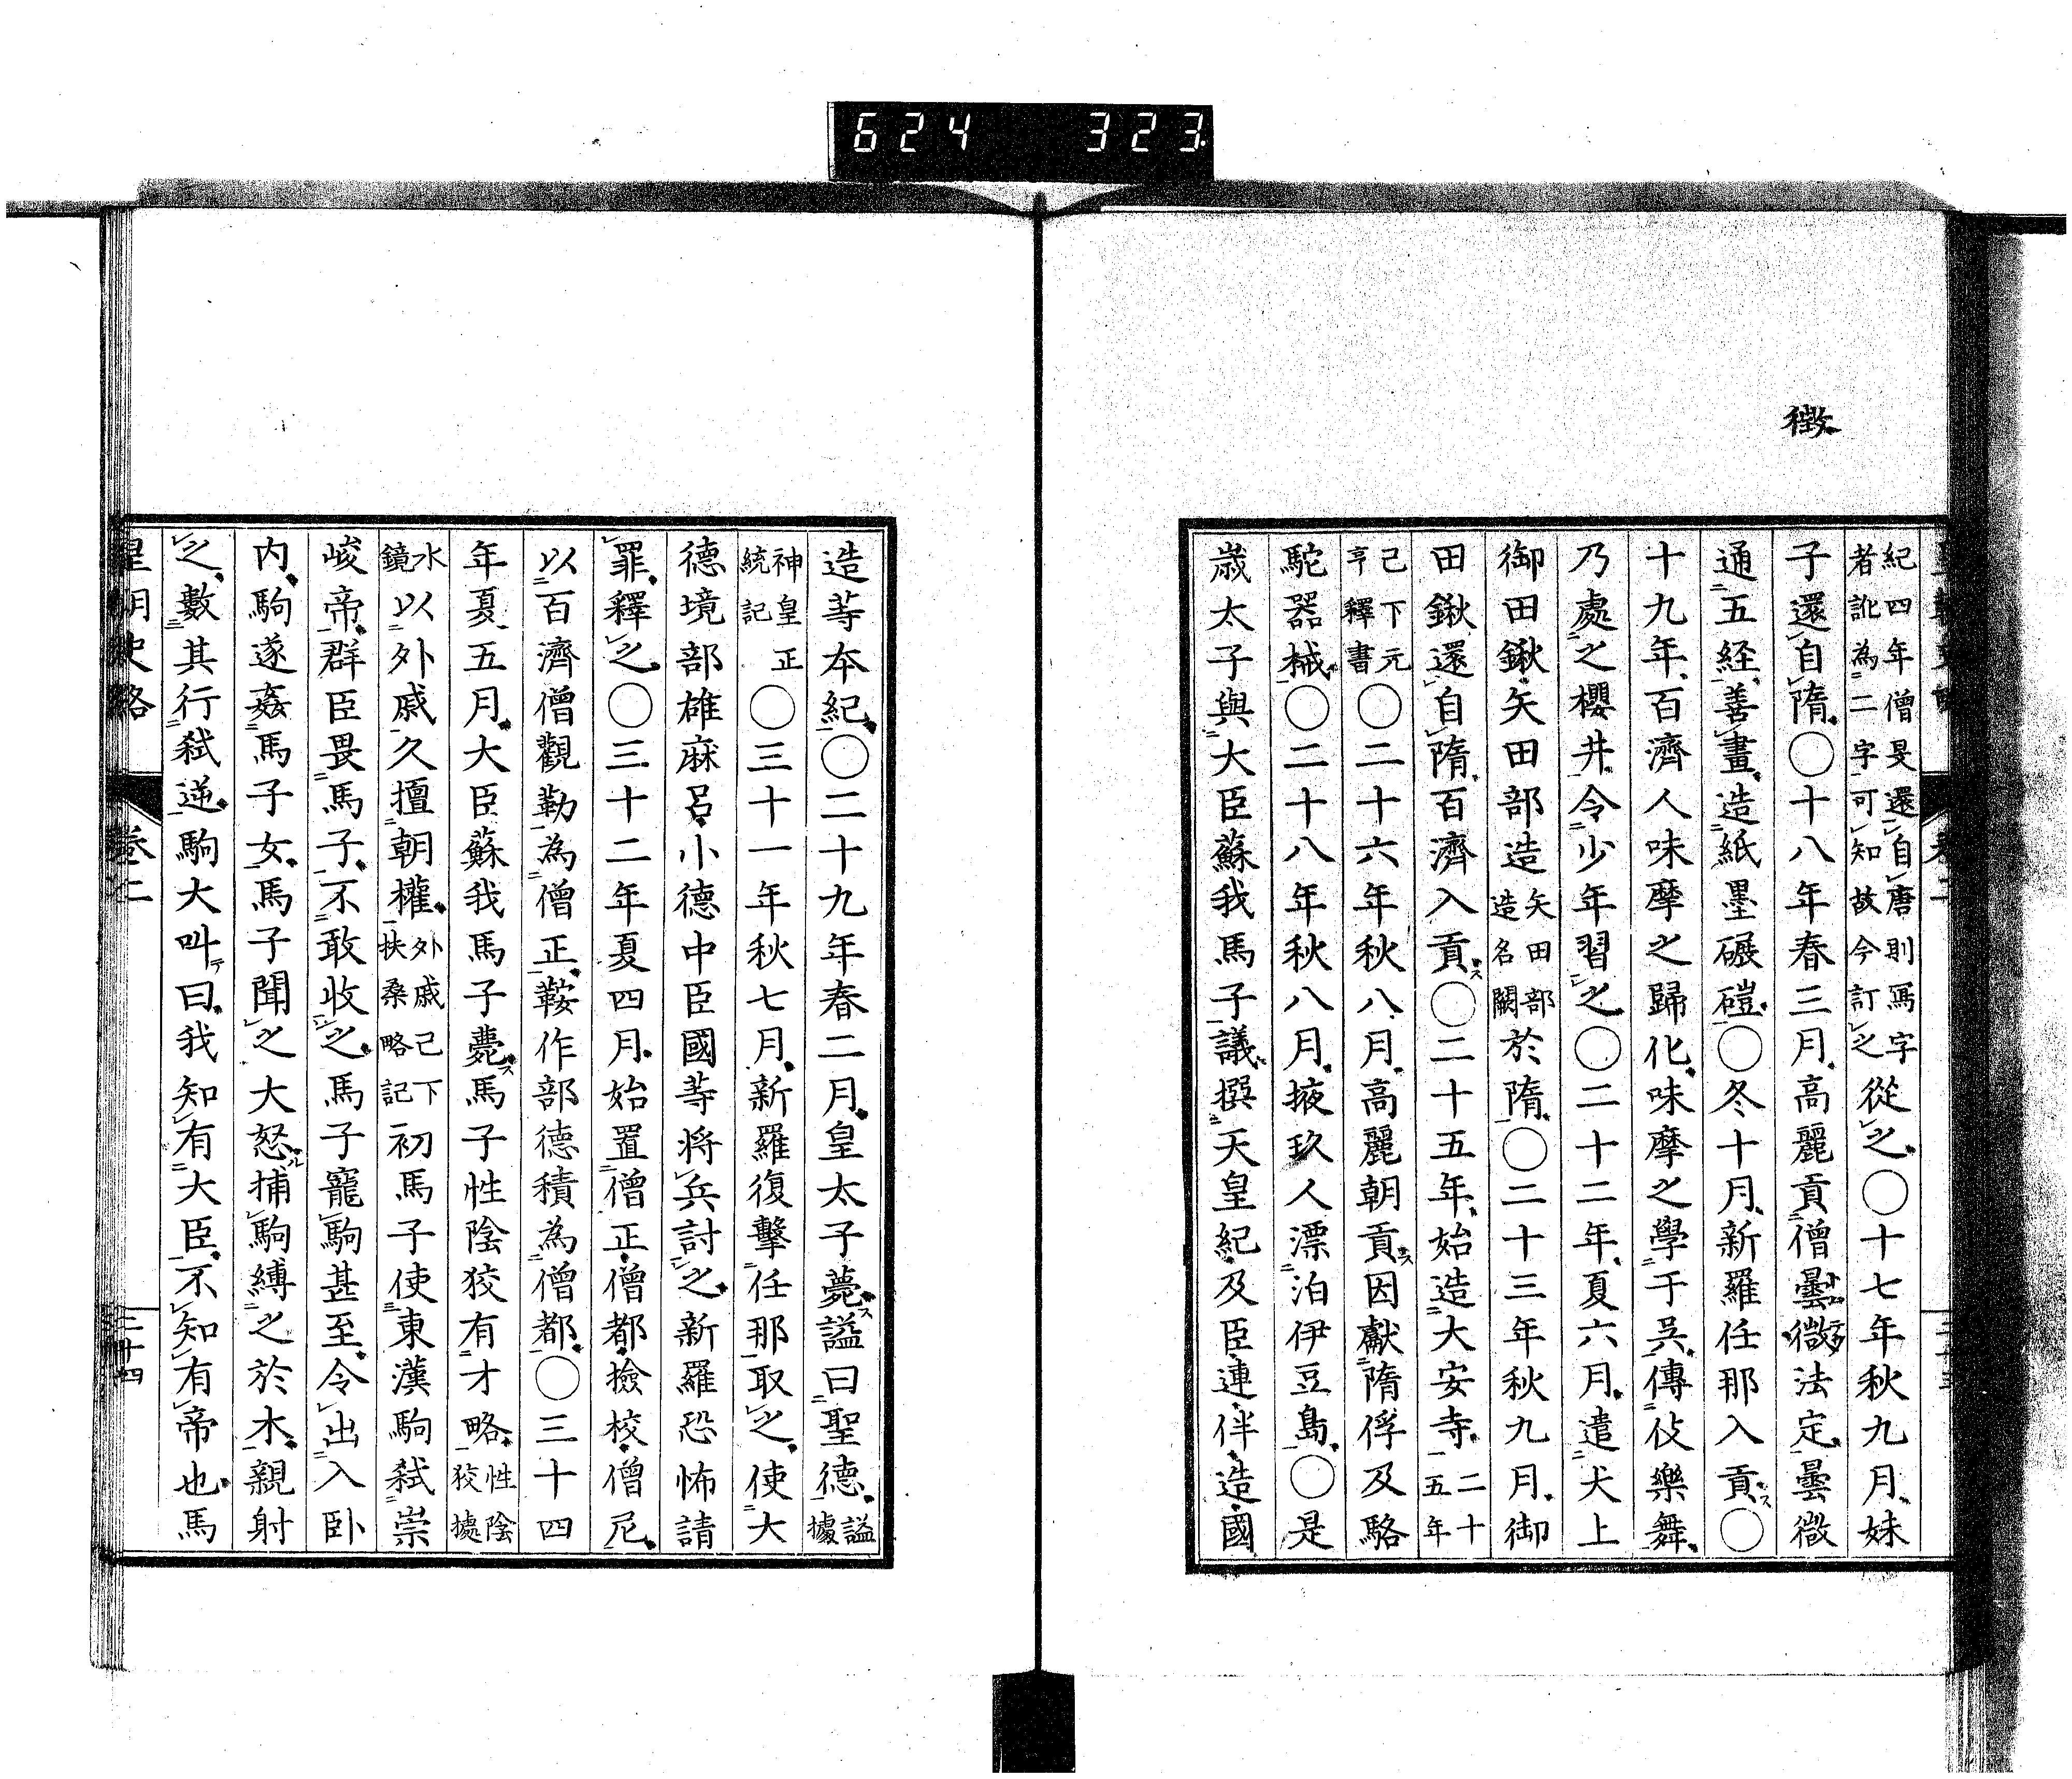 624 323
徴
紀四年僧旻還自唐則寫字
者訛為二字可知故今訂之
從之〇十七年秋九月妹
子還自隋〇十八年春三月高麗貢僧曇徴法定曇徴
通五経善畫造紙墨碾磑〇冬十月新羅任那入貢〇
十九年百濟人味摩之歸化味摩之學于呉傳伎樂舞
乃處之櫻井令少年習之〇二十二年夏六月遣犬上
御田鍬矢田部造
矢田部
造名闕
於隋〇二十三年秋九月御
田鍬還自隋百濟入貢〇二十五年始造大安寺
二十
五年
己下元
亨釋書
〇二十六年秋八月高麗朝貢因獻隋俘及駱
駝器械〇二十八年秋八月掖玖人漂泊伊豆島〇是
歳太子與大臣蘇我馬子議撰天皇紀及臣連伴造國
造等本紀〇二十九年春二月皇太子薨謚曰聖德
謚
據
神皇正
統記
〇三十一年秋七月新羅復擊任那取之使大
德境部雄麻呂小德中臣國等将兵討之新羅恐怖請
罪釋之〇三十二年夏四月始置僧正僧都撿校僧尼
以百濟僧觀勒為僧正鞍作部德積為僧都〇三十四
年夏五月大臣蘇我馬子薨馬子性陰狡有才略
性陰
狡據
水
鏡
以外戚久擅朝權
外戚己下
扶桑略記
初馬子使東漢駒弑崇
峻帝群臣畏馬子不敢收之馬子寵駒甚至令出入卧
内駒遂姦馬子女馬子聞之大怒捕駒縛之於木親射
之數其行弑逆駒大叫曰我知有大臣不知有帝也馬
皇朝史略
卷二
二十四